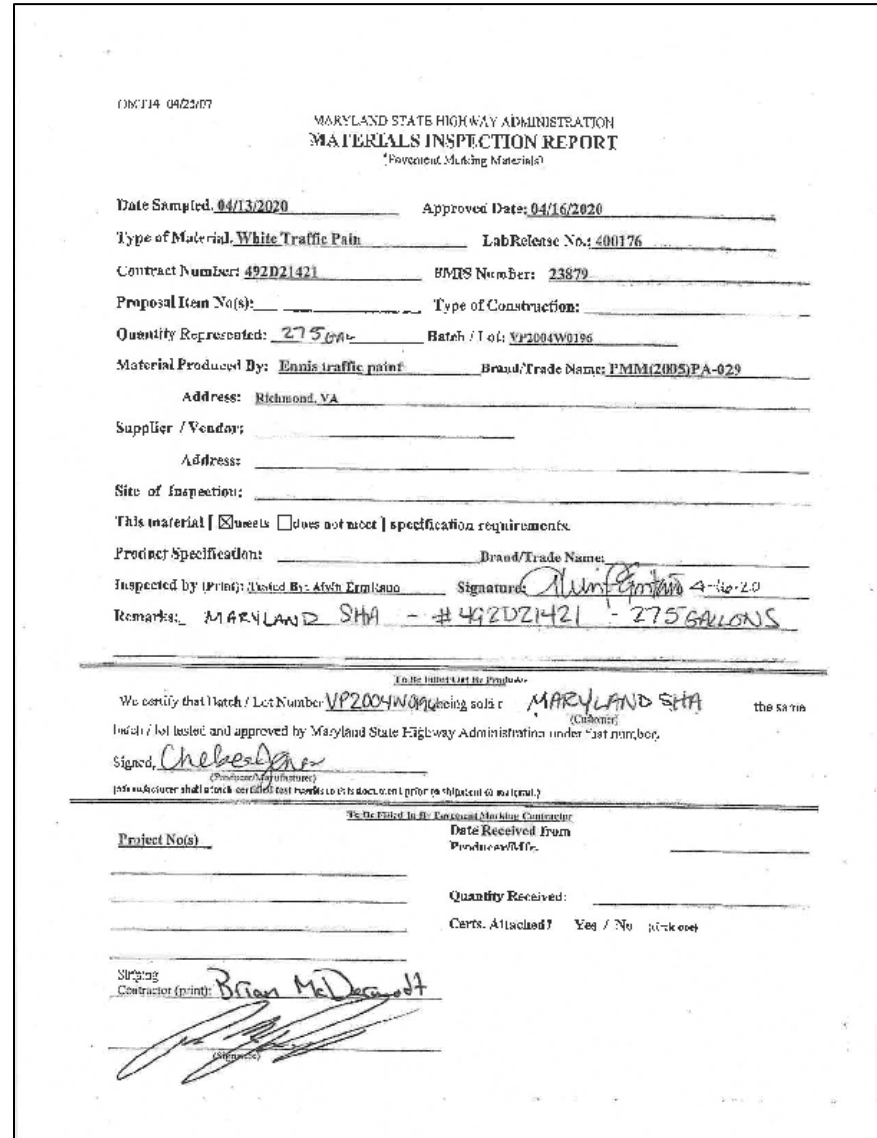 OMT14 04/23/07
MARYLAND STATE HIGHWAY ADMINISTRATION
MATERIALS INSPECTION REPORT
(Pavement Marking Materials)
Date Sampled: 04/13/2020 Approved Date: 04/16/2020
Type of Material: White Traffic Pain Lab Release No.: 400176
Contract Number: 492D21421 BMIS Number: 23879
Proposal Item No(s): Type of Construction:
Quantity Represented: 275 GAL Batch / Lot: VP2004W0196
Material Produced By: Ennis traffic paint Brand/Trade Name: PMM(2005)PA-029
Address: Richmond, VA
Supplier / Vendor:
Address:
Site of Inspection:
This material [ ☒meets ☐does not meet ] specification requirements.
Product Specification: Brand/Trade Name:
Inspected by (Print): Tested By: Alvin Signature: 4-16-20
Remarks: MARYLAND SHA - #492D21421 - 275 GALLONS
To Be Filled Out By Producer
We certify that Batch / Lot Number VP2004W0196 being sold t MARYLAND SHA the same
(Customer)
batch / lot tested and approved by Maryland State Highway Administration under that number.
Signed, Chelsea Jones
(Producer/Manufacturer)
(Manufacturer shall attach certified test results to this document prior to shipment of material.)
To Be Filled In By Pavement Marking Contractor
Project No(s) Date Received from
Producer/Mfr.
Quantity Received:
Certs. Attached? Yes / No (circle one)
Striping
Contractor (print): Brian McDermott
(Signature)